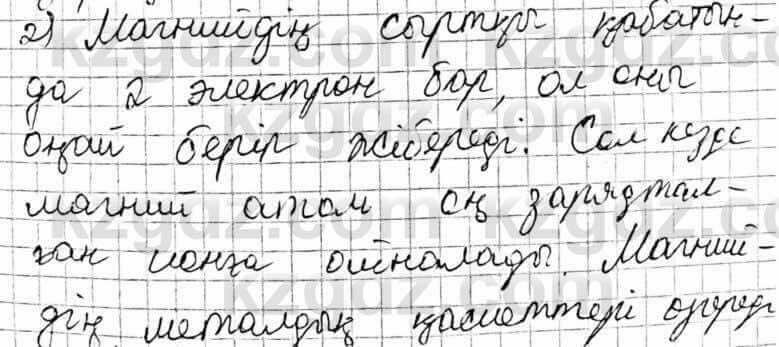 2) Магнийдің сыртқы қабатын-
да 2 электрон бар, ол оны
оңай беріп жібереді. Сол кезде
магний атом оң зарядтал-
ған ионға айналады. Магний-
дің металдық қасиеттері өзгереді